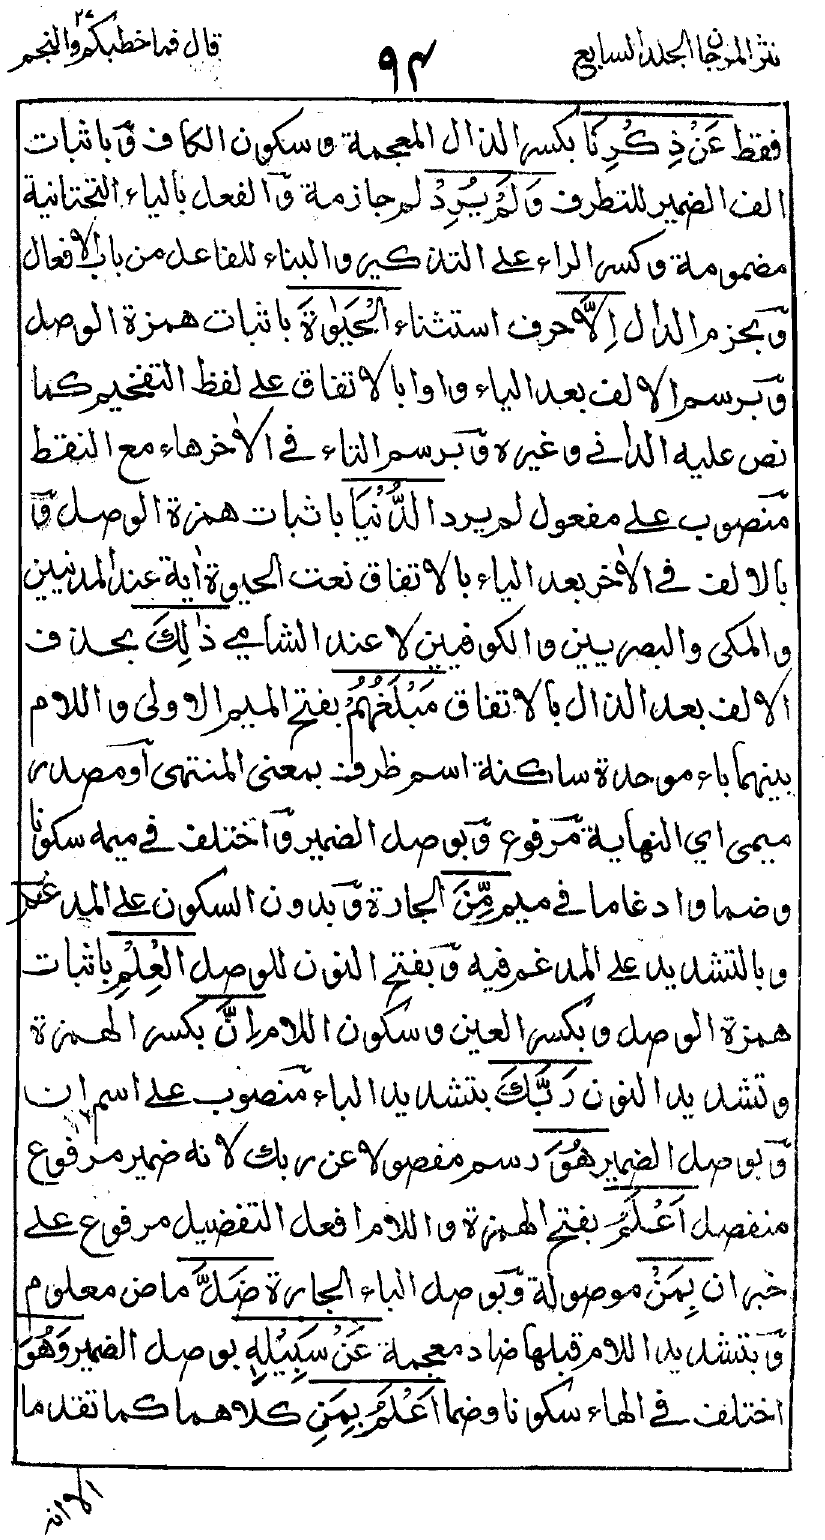 نثر المرجان الجلد السابع
٩٤
قال فما خطبكم ٢٧ والنجم
فقط عَنْ ذِكْرِنَا بكسر الذال المعجمة وسكون الكاف وباثبات
الف الضمير للتطرف وَلَمْ يُرِدْ لم جازمة والفعل بالياء التحتانية
مضمومة وكسر الراء على التذكير والبناء للفاعل من باب الافعال
وبجزم الدال اِلَّا حرف استثناء الْحَيٰوةَ باثبات همزة الوصل
وبرسم الالف بعد الياء واوا بالاتفاق على لفظ التفخيم كما
نص عليه الداني وغيره وبرسم التاء في الاٰخر هاء مع النقط
منصوب على مفعول لم يرد الدُّنْيَا باثبات همزة الوصل و
بالالف في الاٰخر بعد الياء بالاتفاق نعت الحيوة اٰية عند المدنيين
والمكى والبصريين والكوفيين لا عند الشامي ذٰلِكَ بحذف
الالف بعد الذال بالاتفاق مَبْلَغُهُمْ بفتح الميم الاولى واللام
بينهما باء موحدة ساكنة اسم ظرف بمعنى المنتهى او مصدر
ميمى اي النهاية مرفوع وبوصل الضمير واختلف في ميمه سكونا
وضما وادغاما في ميم مِّنَ الجارة وبدون السكون على المدغم
وبالتشديد على المدغم فيه وبفتح النون للوصل الْعِلْمِ باثبات
همزة الوصل وبكسر العين وسكون اللام اِنَّ بكسر الهمزة
وتشديد النون رَبَّكَ بتشديد الباء منصوب على اسم ان
وبوصل الضمير هُوَ رسم مفصولا عن ربك لانه ضمير مرفوع
منفصل اَعْلَمُ بفتح الهمزة واللام افعل التفضيل مرفوع على
خبر ان بِمَنْ موصولة وبوصل الباء الجارة ضَلَّ ماض معلوم
وبتشديد اللام قبلها ضاد معجمة عَنْ سَبِيْلِهٖ بوصل الضمير وَهُوَ
اختلف في الهاء سكونا وضما اَعْلَمُ بِمَنِ كلاهما كما تقدما